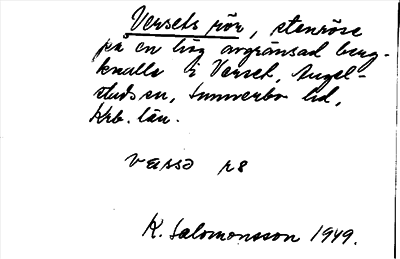 Versels rör, stenröse
på en hög avgränsad berg-
knalle i Versel, Angel-
stads sn, Sunnerbo hd,
Krb. län.
væssə r8
K. Salomonsson 1949.